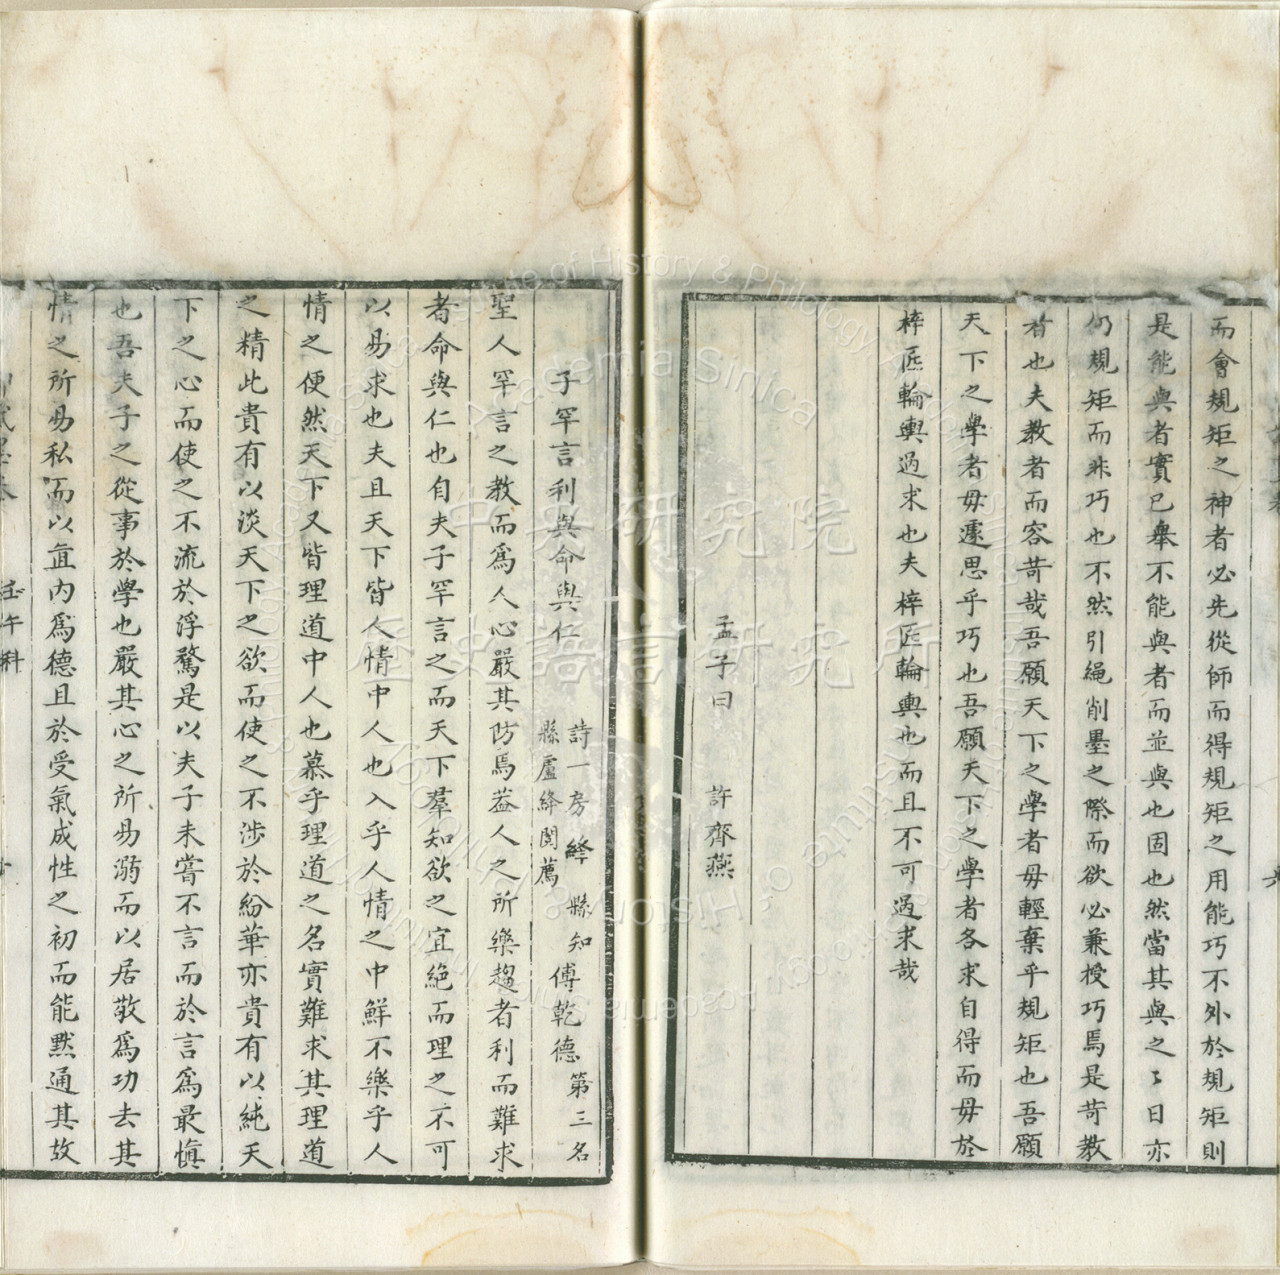 而會規矩之神者必先從師而得規矩之用能巧不外於規矩則
是能與者實已舉不能與者而並與也固也然當其與之之日亦
仍規矩而非巧也不然引繩削墨之際而欲必兼授巧焉是苛教
者也夫教者而容苛哉吾願天下之學者毋輕棄乎規矩也吾願
天下之學者毋遽思乎巧也吾願天下之學者各求自得而毋於
梓匠輪輿過求也夫梓匠輪輿也而且不可過求哉
孟子曰 許齊燕
子罕言利與命與仁 詩一房絳縣知縣盧絳閱薦 傅乾德 第三名
聖人罕言之教而為人心嚴其防焉葢人之所樂趨者利而難求
者命與仁也自夫子罕言之而天下羣知欲之宜絕而理之不可
以易求也夫且天下皆人情中人也入乎人情之中鮮不樂乎人
情之便然天下又皆理道中人也慕乎理道之名實難求其理道
之精此貴有以淡天下之欲而使之不涉於紛華亦貴有以純天
下之心而使之不流於浮騖是以夫子未嘗不言而於言為最慎
也吾夫子之從事於學也嚴其心之所易溺而以居敬為功去其
情之所易私而以直內為德且於受氣成性之初而能默通其故
壬午科
中央研究院
歷史語言研究所
Institute of History & Philology, Academia Sinica